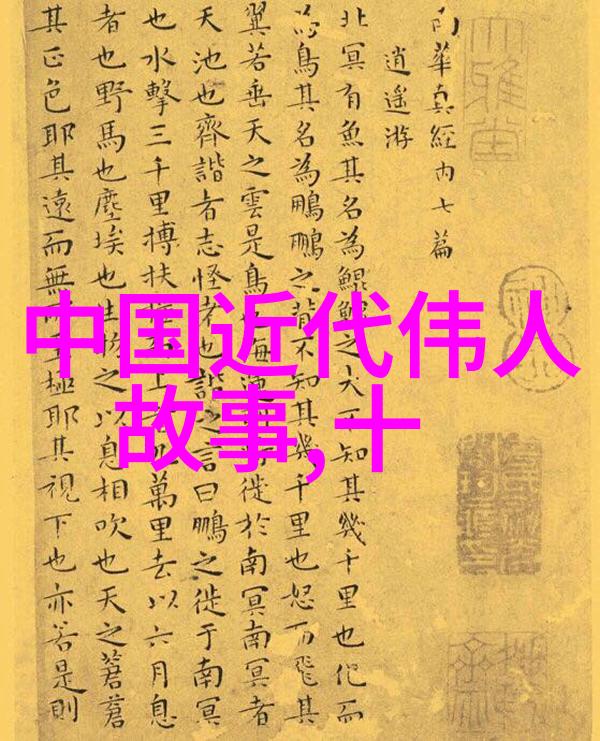 中国近代伟人
故事,十
南華真經內七篇
逍遙游
北冥有魚其名為鯤鯤之大不知其幾千里也化而
為鳥其名為鵬鵬之背不知其幾千里也怒而飛其
翼若垂天之雲是鳥也海運將徙於南冥南冥者
天池也齊諧者志怪者也諧之言曰鵬之徙于南冥
也水擊三千里搏扶上九萬里去以六月息
者也野馬也塵埃也生物之以息相吹也天之蒼蒼
其正色耶其遠而無至極耶其視下也亦若是則
大雅堂